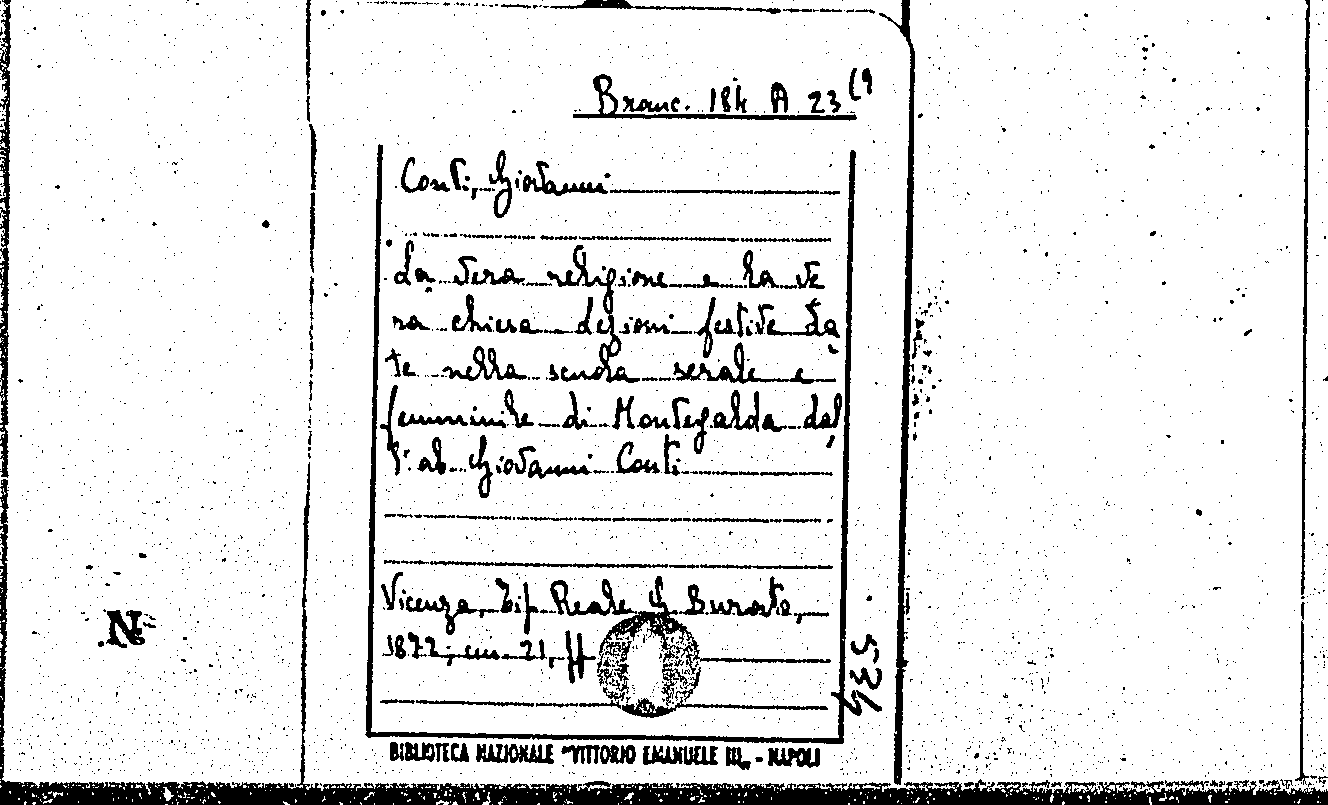 Branc. 184 A 23 (9
Conti, Giovanni
La vera religione e la ve
ra chiesa lezioni festive da
te nella scuola serale e
femminile di Montegalda dal
l'ab. Giovanni Conti
Vicenza, Tip. Reale G. Burato,
1877; cm. 21, pp
534
N
BIBLIOTECA NAZIONALE "VITTORIO EMANUELE III„ - NAPOLI